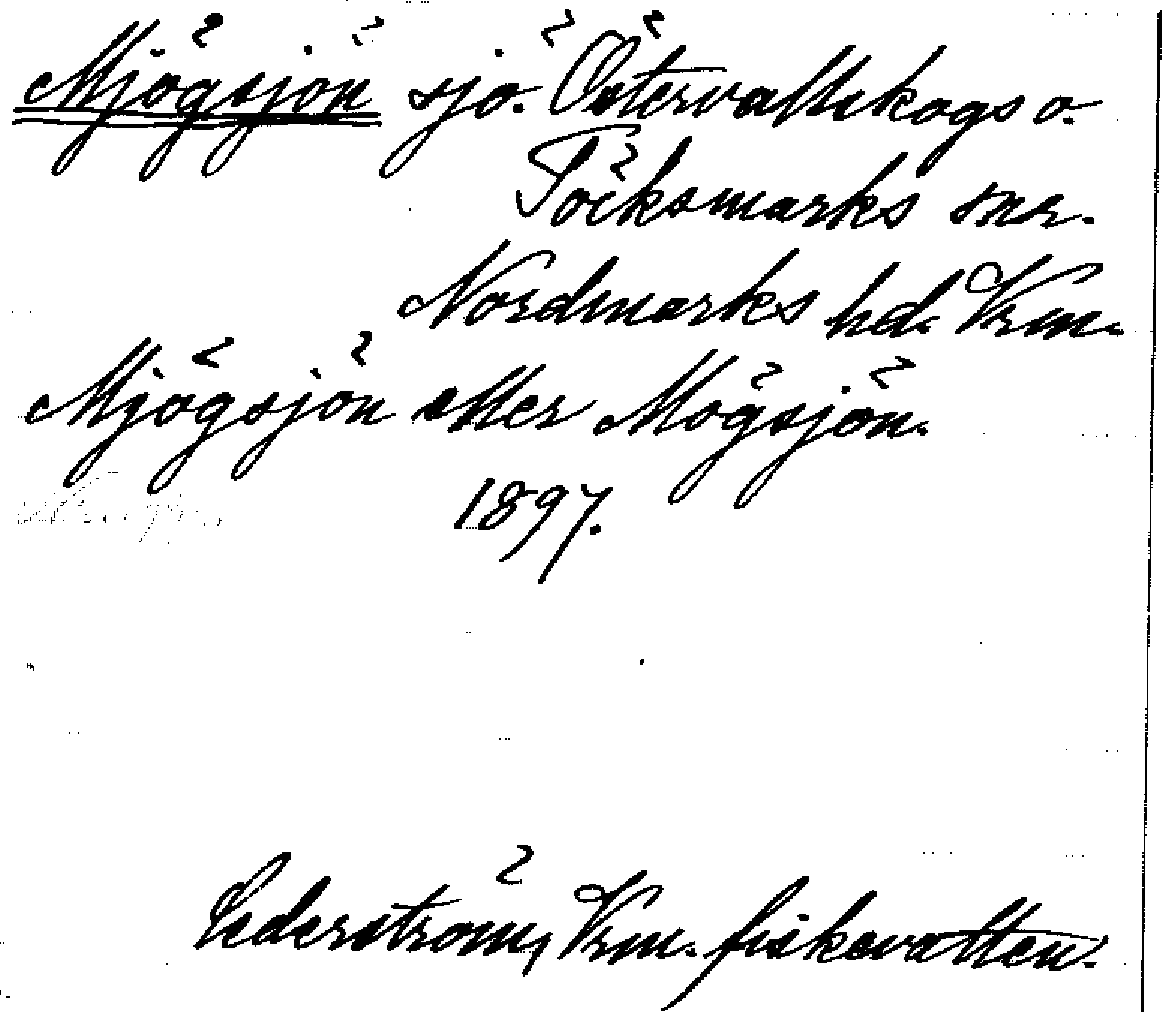 Mjögsjön sjö. Östervallskogs o.
Töcksmarks snr.
Nordmarks hd. Vrm.
Mjögsjön eller Mögsjön.
1897.
Cederström, Vrm. fiskevatten.